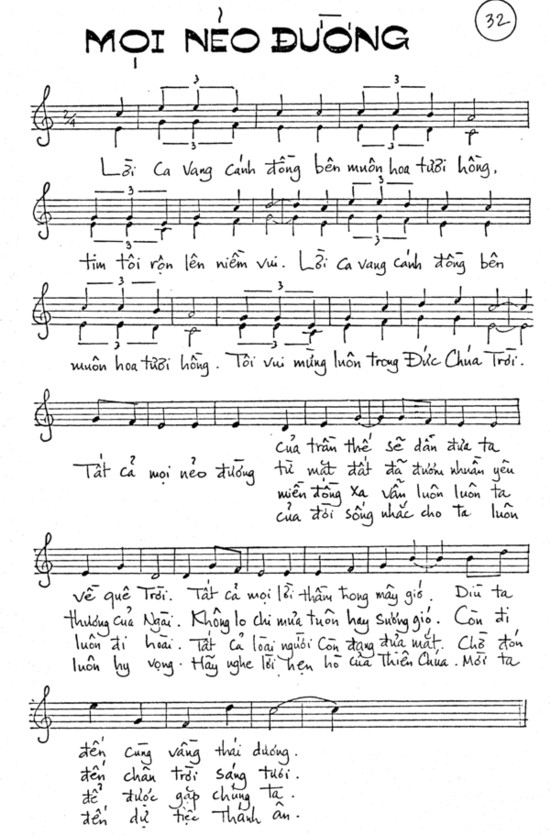 32
MỌI NẺO ĐƯỜNG
2/4
3 3
3 3
Lời ca vang cánh đồng bên muôn hoa tươi hồng,
3
3 3
tim tôi rộn lên niềm vui. Lời ca vang cánh đồng bên
3 3
3 3
muôn hoa tươi hồng. Tôi vui mừng luôn trong Đức Chúa Trời.
của trần thế sẽ dẫn đưa ta
Tất cả mọi nẻo đường từ mặt đất đã đượm nhuần yêu
miền đồng xa vẫn luôn luôn ta
của đời sống nhắc cho ta luôn
về quê Trời. Tất cả mọi lời thầm trong mây gió. Dìu ta
thương của Ngài. Không lo chi mưa tuôn hay sương gió. Còn đi
luôn đi hoài. Tất cả loài người còn đang đưa mắt. Chờ đón
luôn hy vọng. Hãy nghe lời hẹn hò của Thiên Chúa. Mời ta
đến cùng vầng thái dương.
đến chân trời sáng tươi.
để được gặp chúng ta.
đến dự tiệc Thánh ân.